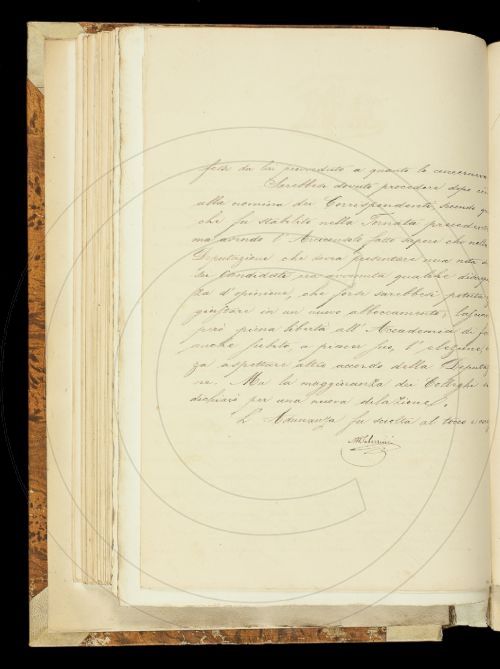 fosse da lui provveduto a quanto lo concerneva
Sarebbesi dovuto procedere dopo
alla nomina dei Corrispondenti, secondo
che fu stabilito nella Tornata precedente
ma avendo l'Avvocato fatto sapere che nella
Deputazione che dovea presentare una nota
dei Candidati era avvenuta qualche
za d'opinione, che forse sarebbesi potuta
giustare in un nuovo abboccamento,
però piena libertà all'Accademia di
anche subito, a piacer suo, l'elezione,
za aspettare altro accordo della
ne. Ma la maggioranza dei Colleghi
dichiarò per una nuova dilazione.
L'Adunanza fu sciolta al tocco